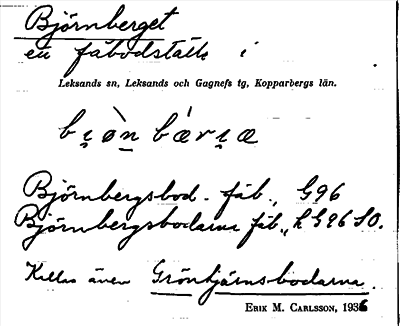 Björnberget
en fäbodställe i
Leksands sn, Leksands och Gagnefs tg, Kopparbergs län.
Björnbergsbod. fäb., G96
Björnbergsbodarna fäb., L G96 SO.
Kallas även Gröntjärnsbodarna.
ERIK M. CARLSSON, 1936